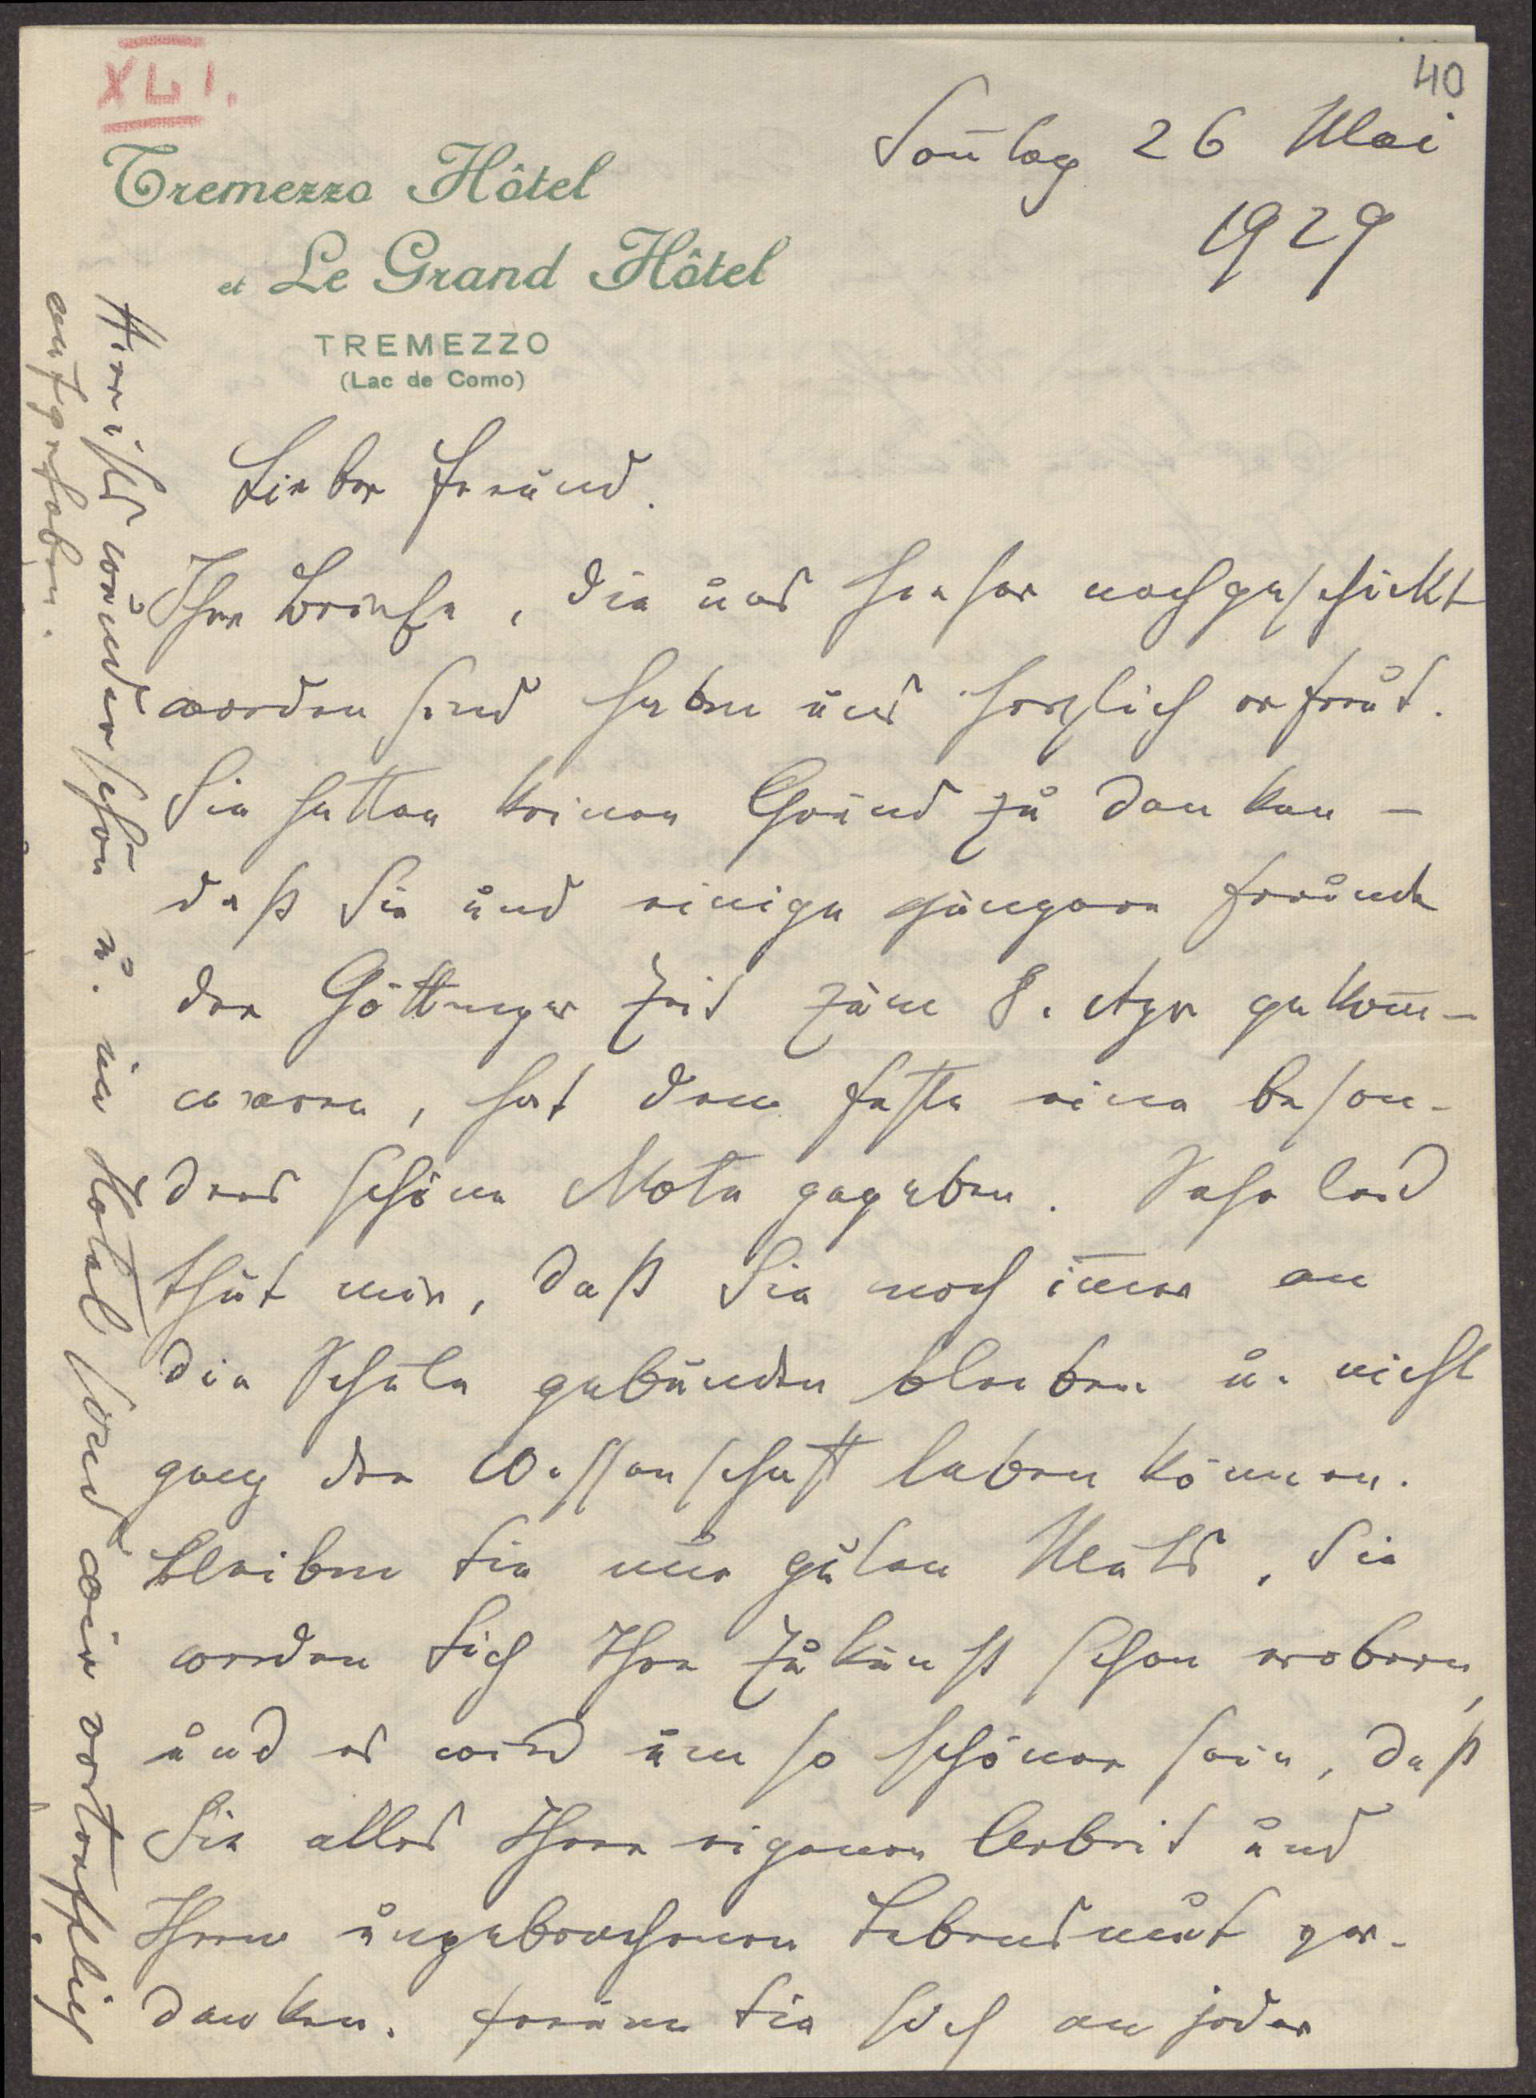 XLI.
40
Tremezzo Hôtel
et Le Grand Hôtel
TREMEZZO
(Lac de Como)
Son̄tag 26 Mai
1929
Lieber Freund.
Ihre Briefe, die uns hierher nachgeschickt
worden sind haben uns herzlich erfreut.
Sie hatten keinen Grund zu danken –
daß Sie und einige jüngere Freunde
der Göttinger Zeit zum 8. Apr gekom̄-
waren, hat dem Feste eine beson-
ders schöne Note gegeben. Sehr leid
thut mir, daß Sie noch im̄er an
die Schule gebunden bleiben u. nicht
ganz der Wissenschaft leben können.
Bleiben Sie nur guten Muts, Sie
werden Sich Ihre Zukunft schon erobern,
und es wird um so schöner sein, daß
Sie alles Ihrer eigenen Arbeit und
Ihrem ungebrochenen Lebensmut ver-
danken. Freuen Sie sich an jeder
Hier ists wunderschön u. im Hotel sind wir vortrefflich
aufgehoben.